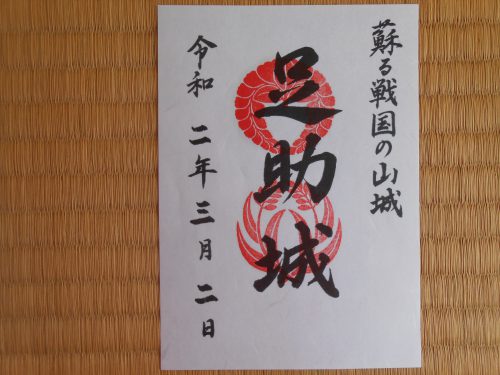 蘇る戦国の山城
足助城
令和 二年 三月 二日